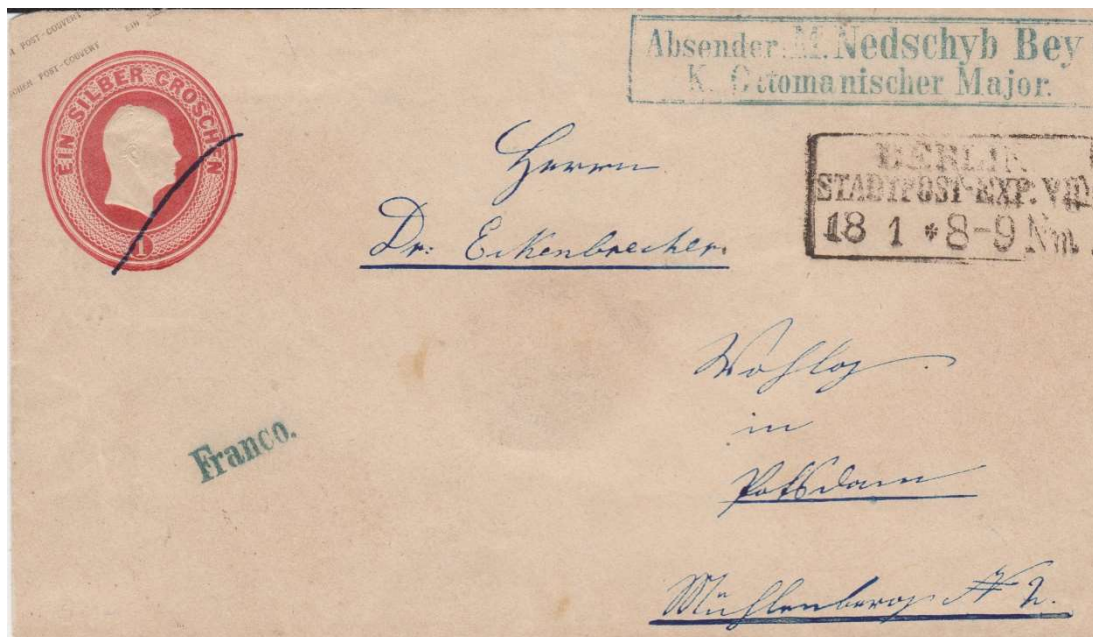 POST-COUVERT EIN
POST-COUVERT
EIN SILBER GROSCHEN
1
Absender: M. Nedschyb Bey
K. Ottomanischer Major.
BERLIN
STADTPOST-EXP. VIII
18 1 * 8-9 Nm.
Herrn
Dr: Eckenbrecher.
Franco.
Wohlg
in
Potsdam
Mühlenberg № 2.